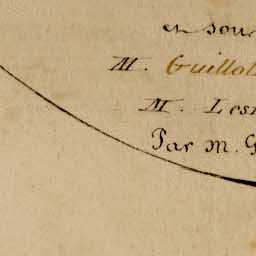 et sous
M. Guillot
M. Les
Par M. G